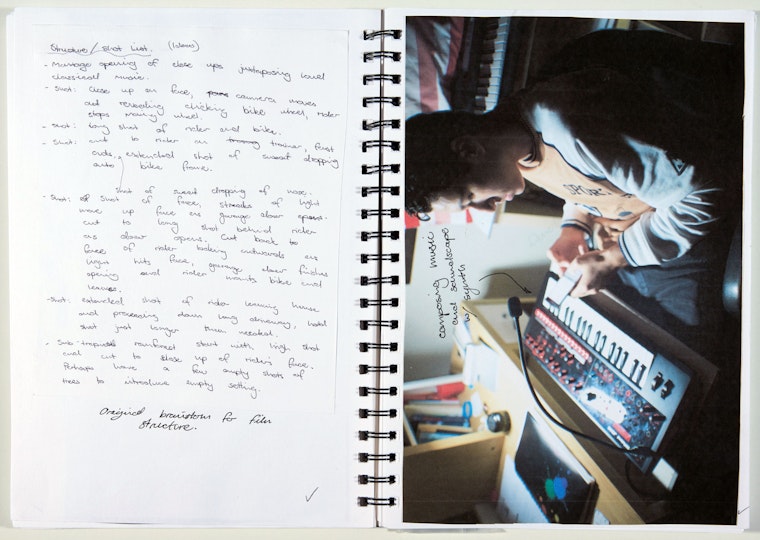 Structure / Shot List. (Ideas)
- Montage opening of close ups juxtaposing loud
classical music.
- Shot: Close up on face, camera moves
out revealing clicking bike wheel, rider
stops moving wheel.
- Shot: Long shot of rider and bike.
- Shot: cut to rider on trainer, first
ends, extended shot of sweat dropping
onto bike frame.
shot of sweat dropping of nose.
- Shot: Shot of face, streaks of light
move up face as garage door opens.
Cut to long shot behind rider
as door opens. Cut back to
face of rider looking outwards as
light hits face, garage door finishes
opening and rider mounts bike and
leaves.
- Shot: extended shot of rider leaving house
and proceeding down long driveway, hold
shot just longer than needed.
- Sub-tropical rainforest start with high shot
and cut to close up of rider's face.
Perhaps have a few empty shots of
trees to introduce empty setting.
Original brainstorm for film
structure.
composing music
and soundscape
w/ synth
SPORT